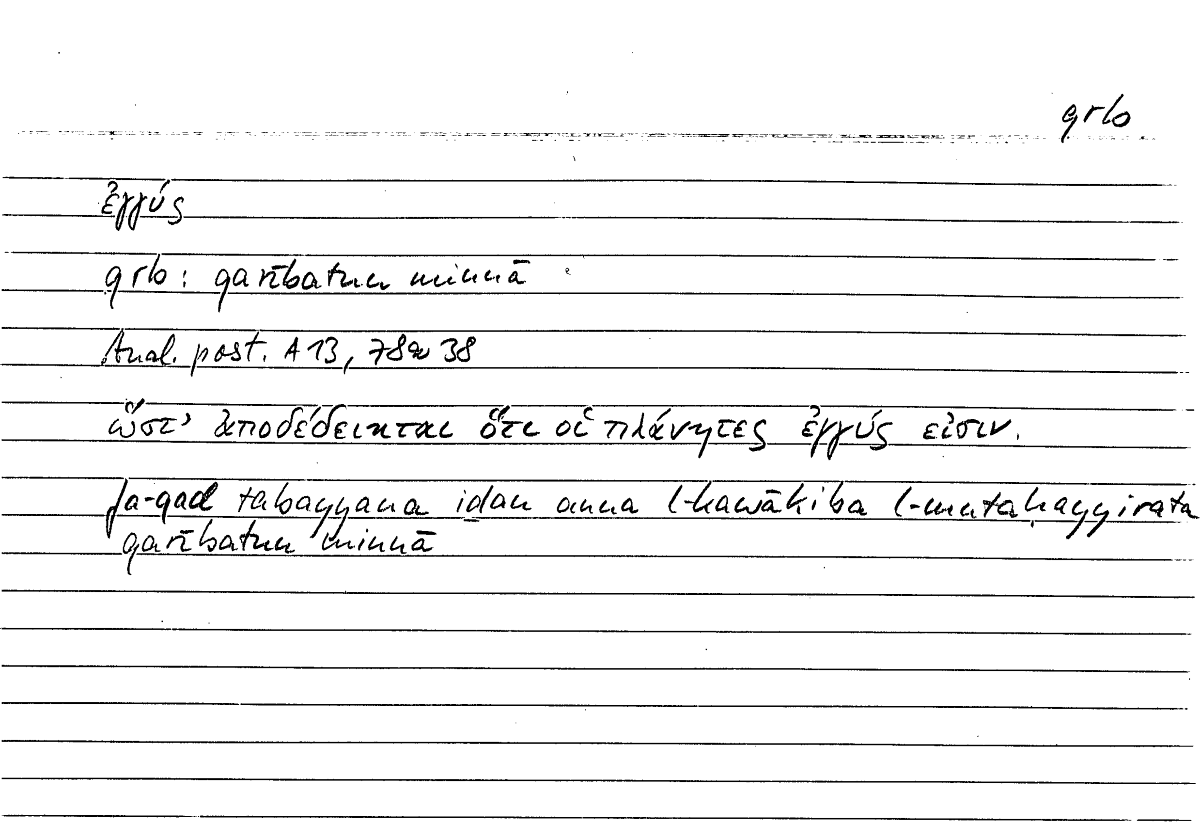 qrb
ἐγγύς
qrb: qarībatun minnā
Anal. post. A 13, 78a 38
ὥστ' ἀποδέδεικται ὅτι οἱ πλάνητες ἐγγύς εἰσιν.
fa-qad tabayyana iḏan anna l-kawākiba l-mutaḥayyirata
qarībatun minnā